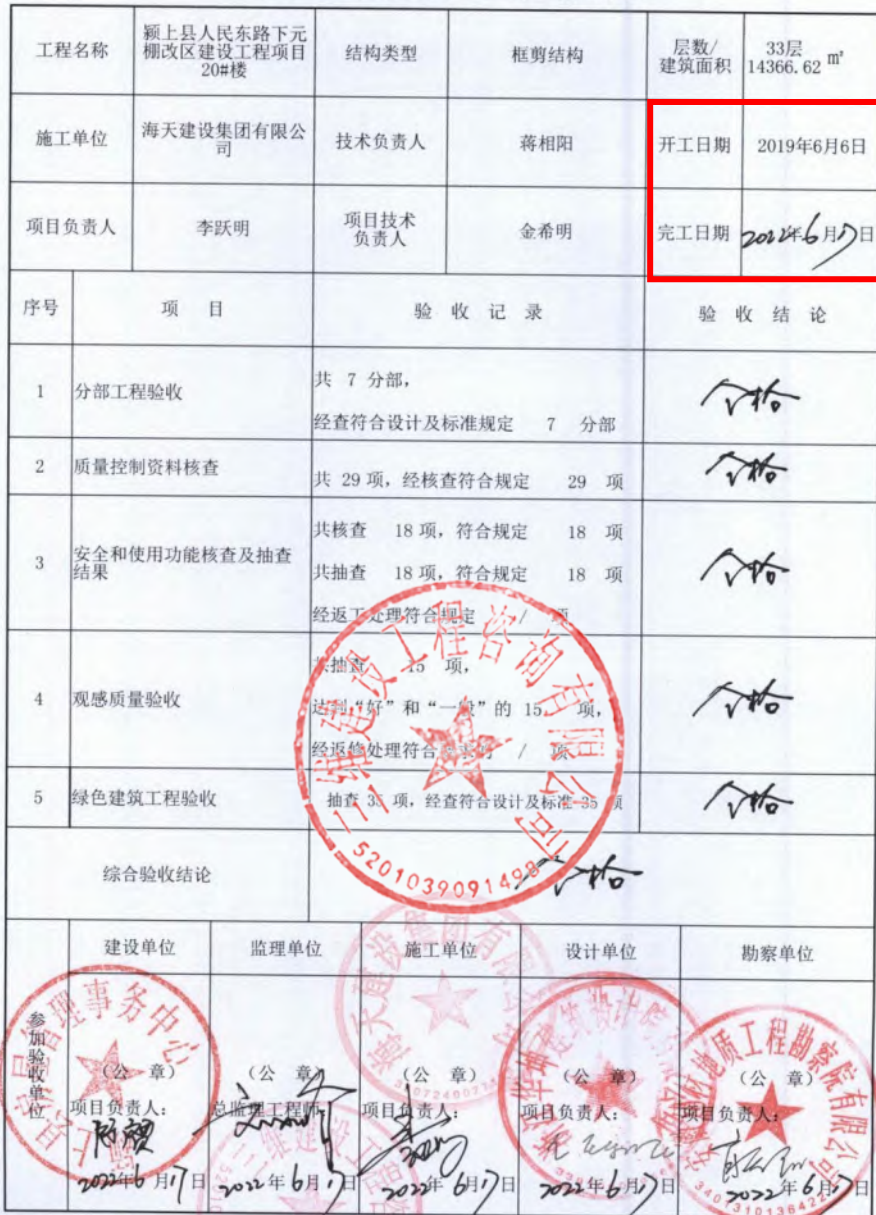 工程名称
颍上县人民东路下元
棚改区建设工程项目
20#楼
结构类型
框剪结构
层数/
建筑面积
33层
14366.62 m²
施工单位
海天建设集团有限公
司
技术负责人
蒋相阳
开工日期
2019年6月6日
项目负责人
李跃明
项目技术
负责人
金希明
完工日期
2022年6月17日
序号
项 目
验 收 记 录
验 收 结 论
1
分部工程验收
共 7 分部,
经查符合设计及标准规定 7 分部
合格
2
质量控制资料核查
共 29 项, 经核查符合规定 29 项
合格
3
安全和使用功能核查及抽查
结果
共核查 18 项, 符合规定 18 项
共抽查 18 项, 符合规定 18 项
经返工处理符合规定 / 项
合格
4
观感质量验收
共抽查 15 项,
达到“好”和“一般”的 15 项,
经返修处理符合要求的 / 项
合格
5
绿色建筑工程验收
抽查 35 项, 经查符合设计及标准 35 项
合格
综合验收结论
合格
三维建设工程咨询有限公司
5201039091498
参加验收单位
建设单位
监理单位
施工单位
设计单位
勘察单位
(公 章)
(公 章)
(公 章)
(公 章)
(公 章)
项目负责人:
总监理工程师:
项目负责人:
项目负责人:
项目负责人:
2022年6月17日
2022年6月17日
2022年6月17日
2022年6月17日
2022年6月17日